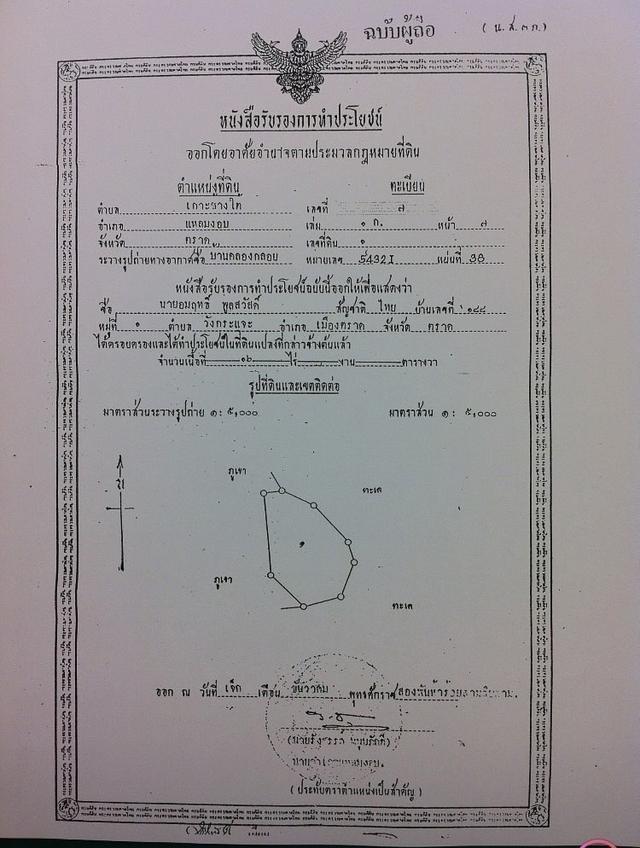 ฉบับผู้ถือ
( น.ส.๓ ก.)
หนังสือรับรองการทำประโยชน์
ออกโดยอาศัยอำนาจตามประมวลกฎหมายที่ดิน
ตำแหน่งที่ดิน ทะเบียน
ตำบล เกาะช้างใต้ เลขที่ ๗
อำเภอ แหลมงอบ เล่ม ๑ ก. หน้า ๗
จังหวัด ตราด เลขที่ดิน ๑
ระวางรูปถ่ายทางอากาศชื่อ บ้านคลองกลอย หมายเลข 5432I แผ่นที่ 38
หนังสือรับรองการทำประโยชน์ฉบับนี้ออกให้เพื่อแสดงว่า
ชื่อ นายอมฤทธิ์ พูลสวัสดิ์ สัญชาติ ไทย บ้านเลขที่ ๑๘๘
หมู่ที่ ๑ ตำบล วังกระแจะ อำเภอ เมืองตราด จังหวัด ตราด
ได้ครอบครองและได้ทำประโยชน์ในที่ดินแปลงที่กล่าวข้างต้นแล้ว
จำนวนเนื้อที่ ๑๒ ไร่ งาน ตารางวา
รูปที่ดินและเขตติดต่อ
มาตราส่วนระวางรูปถ่าย ๑: ๕,๐๐๐ มาตราส่วน ๑: ๕,๐๐๐
ภูเขา
ทะเล
น
๑
ภูเขา
ทะเล
ออก ณ วันที่ เจ็ด เดือน ธันวาคม พุทธศักราช สองพันห้าร้อย
(ประทับตราตำแหน่งเป็นสำคัญ)